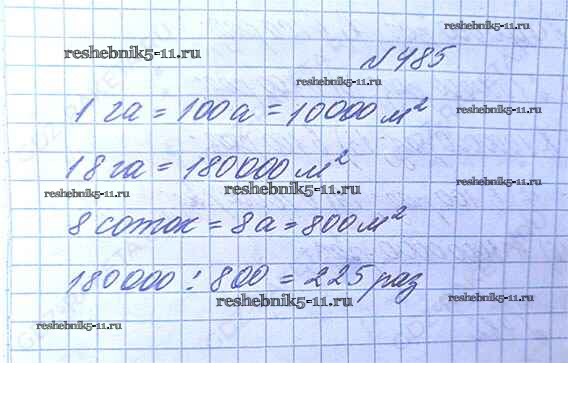 reshebnik5-11.ru
№485
reshebnik5-11.ru
1 га = 100а = 10000 м²
reshebnik5-11.ru
18 га = 180000 м²
reshebnik5-11.ru
reshebnik5-11.ru
reshebnik5-11.ru
8 соток = 8а = 800 м²
reshebnik5-11.ru
180000 : 800 = 225 раз
reshebnik5-11.ru
reshebnik5-11.ru
reshebnik5-11.ru